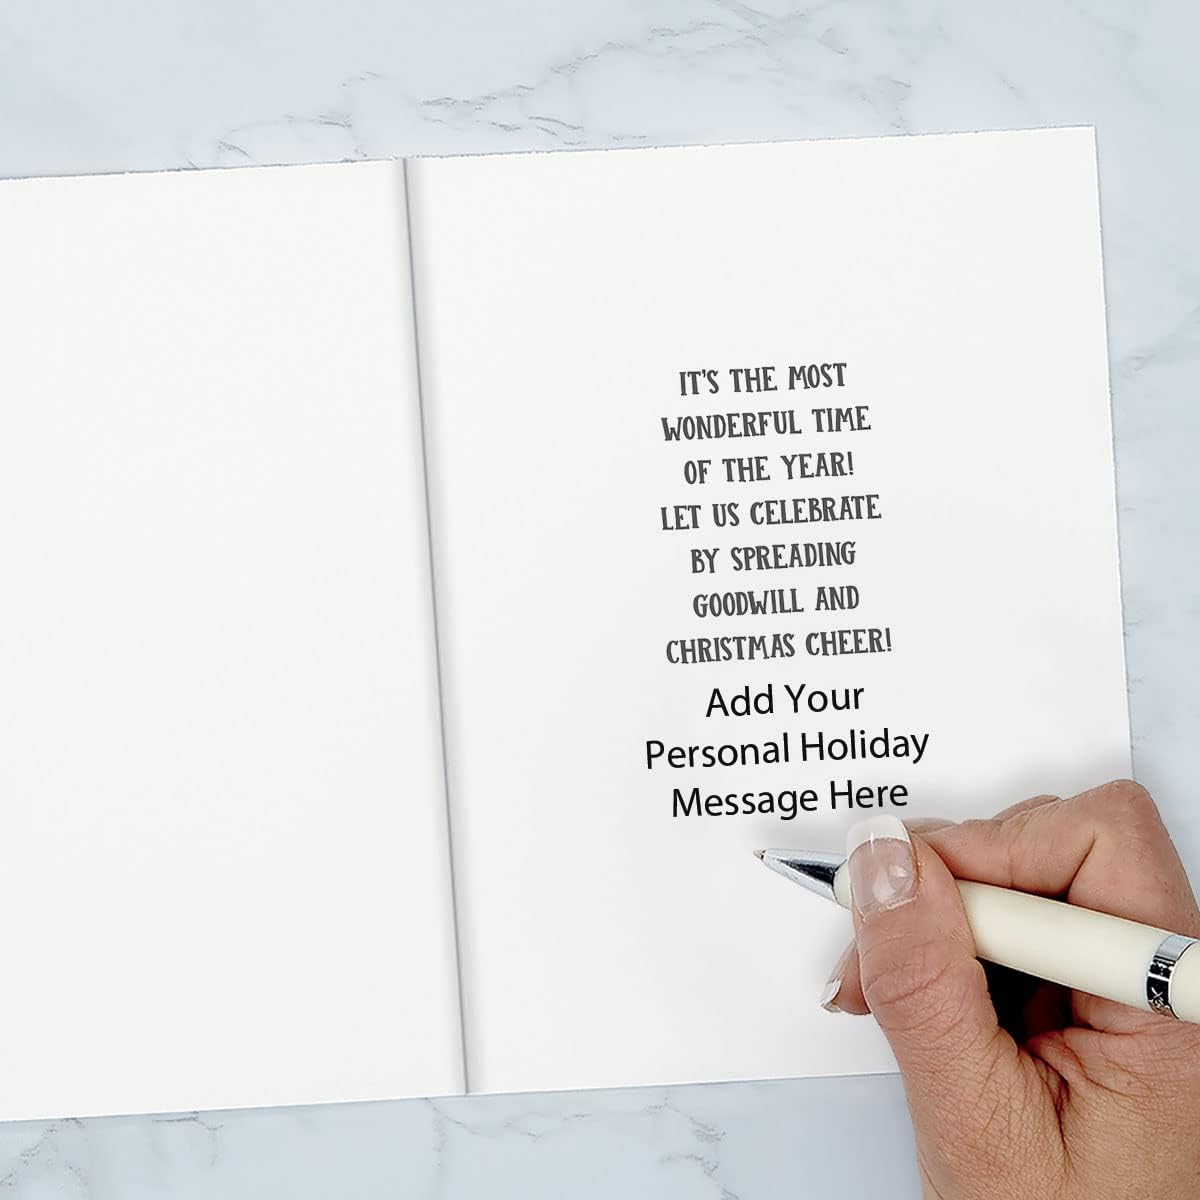 IT'S THE MOST
WONDERFUL TIME
OF THE YEAR!
LET US CELEBRATE
BY SPREADING
GOODWILL AND
CHRISTMAS CHEER!
Add Your
Personal Holiday
Message Here